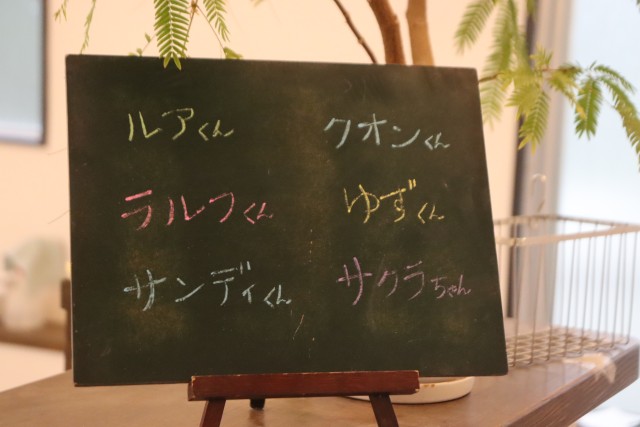 ルアくん
クオンくん
ラルフくん
ゆずくん
サンディくん
サクラちゃん